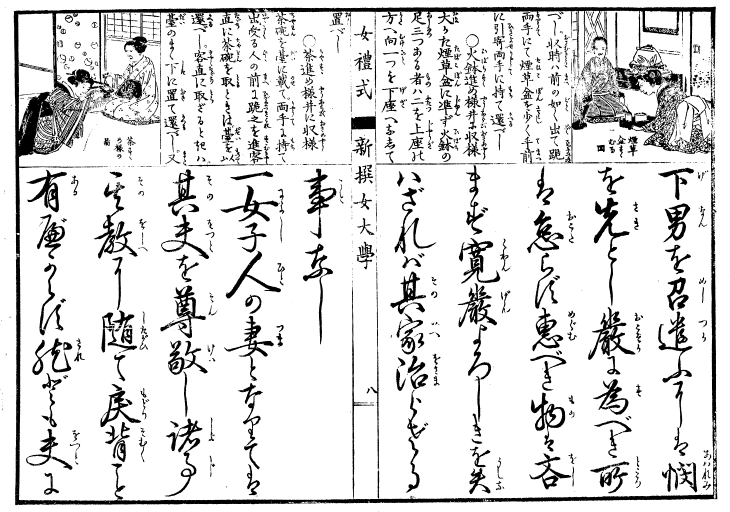 べし収時ハ前の如く出て跪
両手にて煙草盆を少く手前
に引寄両手に持て還べし
○火鉢進め様并に収様
大かた煙草盆に準ず火鉢の
足三つある者ハ二を上座の
方へ向一つを下座へなして
置べし
○茶進め様并に収様
茶碗を臺に載て両手に持て
出受る人の前に跪之を進客
直に茶碗を取しときは臺を
還べし客直に取ざると起ハ
臺のまゝ下に置て還べし又
煙草
盆をすゝむる
図
茶を
の様の
図
女禮式
新撰女大學
八
下男を召遣ふには憫
を先とし嚴に為べき所
は怠らず恵べき物は吝
まず寛嚴よろしきを失
ハざれバ其家治らざる
事なし
一女子人の妻となりては
其夫を尊敬し諸事
其教に随て戻背こと
有べからず然ども夫に